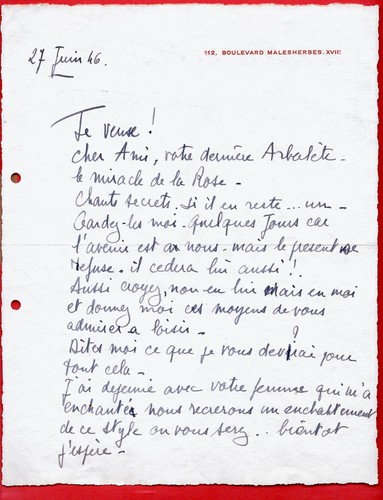 112, BOULEVARD MALESHERBES. XVIIᵉ
27 Juin 46.
Je veux !
Cher Ami, votre dernière Arbalète -
le miracle de la Rose -
Chants secrets. Si il en reste ... un -
Gardez-les moi quelques Jours car
l'avenir est a nous - mais le present se
refuse. il cedera lui aussi !
Aussi croyez, non en lui mais en moi
et donnez moi ces moyens de vous
admirer a loisir -
Dites moi ce que je vous devrai pour
tout cela - ?
J'ai dejeuné avec votre femme qui m'a
enchantée nous recrerons un enchantement
de ce style ou vous serez .. bientot
j'espère -